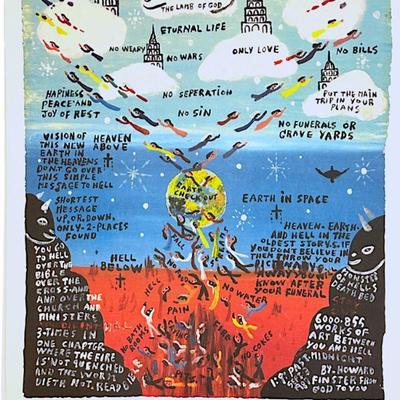 THE LAMB OF GOD
ETURNAL LIFE
NO WEARY
NO WARS
ONLY LOVE
NO BILLS
HAPINESS
PEACE AND
JOY OF REST
NO SEPERATION
NO SIN
PUT THE MAIN
TRIP IN YOUR
PLANS
NO FUNERALS OR
GRAVE YARDS
VISION OF
THIS NEW
EARTH IN
THE HEAVENS
DON.T GO OVER
THIS SIMPLE
MESSAGE TO HELL
HEAVEN
ABOVE
SHORTEST
MESSAGE
UP.OR.DOWN.
ONLY-2-PLACES
FOUND
EARTH
CHECK OUT
EARTH IN SPACE
HEAVEN. EARTH.
AND HELL IN THE
OLDEST STORY.S. IF
YOU DON.T BELIEVE IN
THEM THROW YOUR
KNOW AFTER
YOUR FUNERAL
HELL
BELOW
YOU GO
TO HELL
OVER THE
BIBLE
OVER THE
CROSS AND
AND OVER THE
CHURCH AND
MINISTERS
3-TIMES IN
ONE CHAPTER
WHERE THE FIRE
IS NOT QUENCHED
AND THE WORM
DIETH NOT. READ
NO WATER
PAIN
FIRE
NO
MONSTER
OF HELL.S
DEATH BED
6000.855
WORKS OF
ART BETWEEN
YOU AND HELL
MIDNIGHT
BY. HOWARD
FINSTER FROM
GOD TO YOU